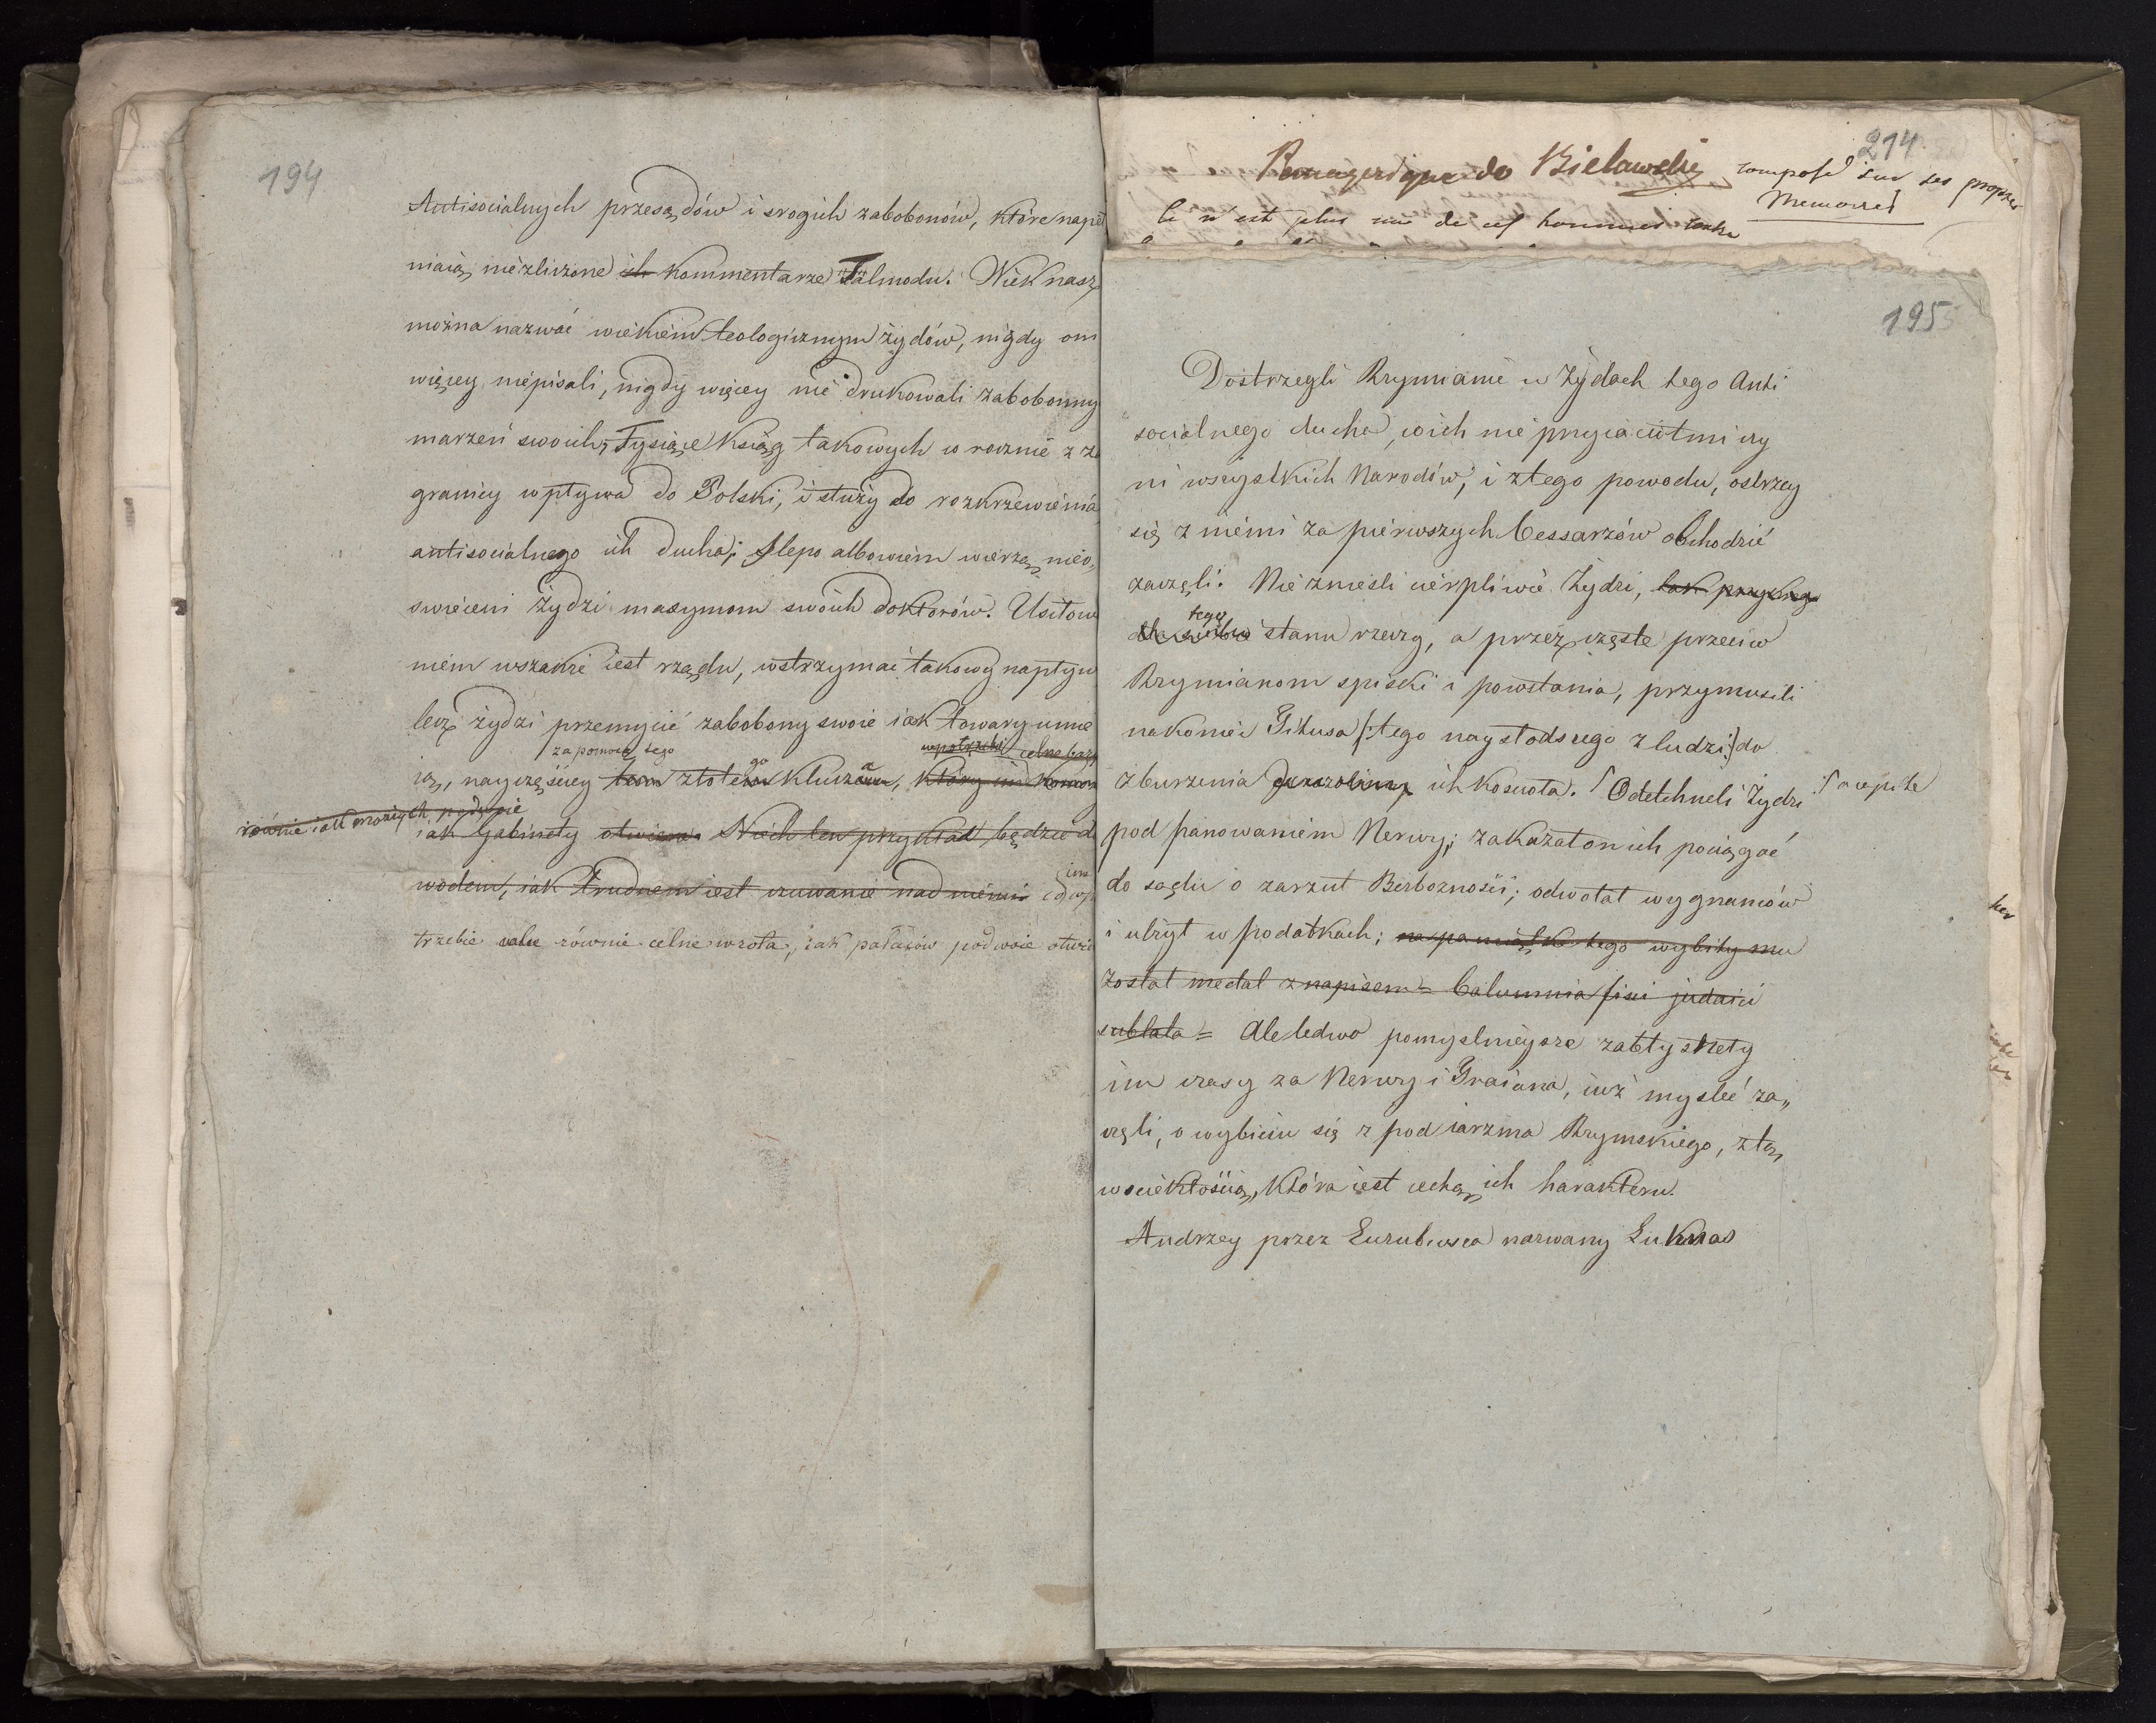 194
Antisocialnych przesądów i srogich zabobonów, które napeł
niaią niezliczone ich kommentarze Talmodu. Wiek nasz
można nazwać wiekiem teologicznym żydów, nigdy oni
więcey niepisali, nigdy więcey nie drukowali zabobonny
marzeń swoich, Tysiące Ksiąg takowych w rocznie z za
granicy wpływa do Polski, i służy do rozkrzewienia
antisocialnego ich ducha; slepo albowiem wierzą nieo„
swieceni Żydzi maxymom swoich doktorów. Usiłowa
niem wszakże iest rządu, wstrzymać takowy napływ
lecz żydzi przemycić zabobony swoie iak towary umie
za pomocą tego
ią, nayczęściey tem złotemgo kluczema, który im komory
równie iak możnych
iak Gabinety otwiera. Niech ten przykład będzie do
wodem, iak trudnem iest czuwanie nad niemi
im
trzebie równie celne wrota, iak pałaców podwoie otwie
214.
Panegerique de Bielawski composé sur ses propres
Memoires
Ce n'est plus un de ces hommes
195
Dostrzegli Rzymianie w Żydach tego Anti
socialnego ducha, co ich nieprzyiaciołmi czy
ni wszystkich Narodów, i z tego powodu, ostrzey
się z niemi za pierwszych Cessarzów obchodzić
zaczęli. Nie znieśli cierpliwie Żydzi, tak przykrego
tego
dla siebie stanu rzeczy, a przez częste przeciw
Rzymianom spiski i powstania, przymusili
nakoniec Titusa /:tego naysłodszego z ludzi:/ do
zburzenia Jerozolimy ich Koscioła. Odetchneli Żydzi
pod panowaniem Nerwy; zakazał on ich pociągać
do sądu o zarzut Bezbożności; odwołał wygnańców
i ulżył w podatkach; na pamiątke tego wybity mu
został medal z napisem = Calumnia fisci judaici
sublata = Ale ledwo pomyslnieysze zabłysnęły
im czasy za Nerwy i Traiana, iuż mysleć za„
częli, o wybiciu się z pod iarzma Rzymskiego, z tą
wsciekłością, która iest cechą ich harakteru.
Andrzey przez Euzubiusza nazwany Lukuas